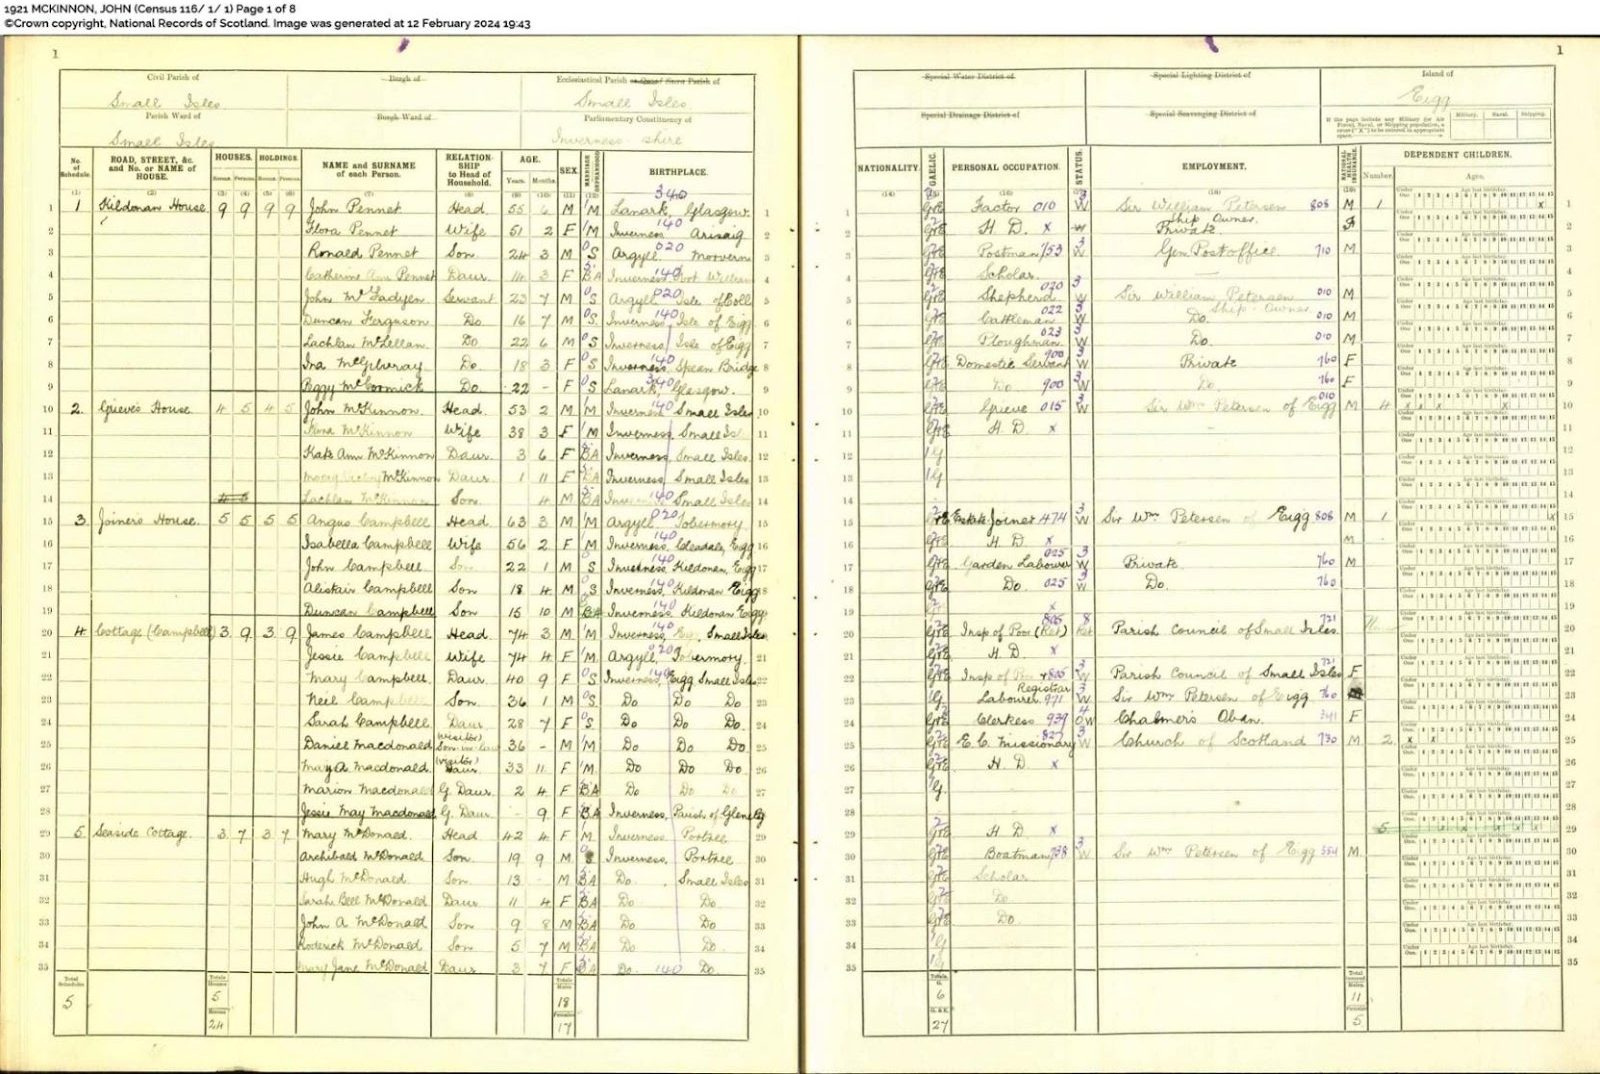 1921 MCKINNON, JOHN (Census 116/ 1/ 1) Page 1 of 8
©Crown copyright, National Records of Scotland. Image was generated at 12 February 2024 19:43
1
Civil Parish of Burgh of Ecclesiastical Parish or Quoad Sacra Parish of
Small Isles. Small Isles.
Parish Ward of Burgh Ward of Parliamentary Constituency of
Small Isles Inverness-shire
No. of Schedule. ROAD, STREET, &c. and No. or NAME of HOUSE. HOUSES. HOLDINGS. NAME and SURNAME of each Person. RELATION-SHIP to Head of Household. AGE. SEX. BIRTHPLACE.
Years. Months.
340
1 1 Kildonan House 9 9 9 9 John Pennet Head 55 6 M M Lanark, Glasgow. 1
2 Flora Pennet Wife 51 2 F M Inverness 140 Arisaig 2
3 Ronald Pennet Son 24 3 M S Argyll 020 Morvern 3
4 Catherine Ann Pennet Daur. 14 3 F BA Inverness 140 Fort William 4
5 John McFadyen Servant 23 7 M S Argyll 020 Isle of Coll 5
6 Duncan Ferguson Do 16 7 M S Inverness 140 Isle of Eigg 6
7 Lachlan McLellan Do 22 6 M S Inverness Isle of Eigg 7
8 Ina Do 18 3 F S Inverness 140 Spean Bridge 8
9 Peggy McCormick Do 22 - F S Lanark, 340 Glasgow. 9
10 2. Grieve's House 4 5 4 5 John McKinnon. Head. 53 2 M M Inverness 140 Small Isles 10
11 McKinnon Wife 38 3 F M Inverness Small Is 11
12 Kate Ann McKinnon Daur. 3 6 F BA Inverness Small Isles. 12
13 McKinnon Daur. 1 11 F BA Inverness Small Isles 13
14 Lachlan McKinnon Son 4 M BA Inverness 140 Small Isles 14
15 3. Joiner's House. 5 5 5 5 Angus Campbell Head 63 3 M M Argyll 020 Tobermory 15
16 Isabella Campbell Wife 56 2 F M Inverness, 140 Cleadale, Eigg 16
17 John Campbell Son 22 1 M S Inverness, 140 Kildonan, Eigg 17
18 Alistair Campbell Son 18 4 M S Inverness 140 Kildonan Eigg 18
19 Duncan Campbell Son 15 10 M BA Inverness 140 Kildonan Eigg 19
20 4 Cottage (Campbell) 3 9 3 9 James Campbell Head 74 3 M M Inverness, 140 Small Isles 20
21 Jessie Campbell Wife 74 4 F M Argyll 020 Tobermory. 21
22 Mary Campbell Daur 40 9 F S Inverness, 140 Eigg Small Isles 22
23 Neil Campbell Son. 36 1 M S Do Do Do 23
24 Sarah Campbell Daur 28 7 F S Do Do Do. 24
25 Daniel Macdonald (visitor) Son-in-law 36 - M M Do Do Do 25
26 Mary A Macdonald (visitor) Daur 33 11 F M Do Do Do. 26
27 Marion Macdonald G. Daur 2 4 F BA Do Do Do 27
28 Jessie May Macdonald G. Daur - 9 F BA Inverness, Parish of 28
29 5. Seaside Cottage. 3 7 3 7 Mary McDonald. Head 42 4 F M Inverness. Portree 29
30 Archibald McDonald Son. 19 9 M Inverness, Portree 30
31 Hugh McDonald. Son. 13 - M BA Do Small Isles 31
32 Sarah Bell McDonald Daur 11 4 F BA Do Do 32
33 John A McDonald Son 9 8 M BA Do Do 33
34 Roderick McDonald Son 5 7 M BA Do Do 34
35 Mary Jane McDonald Daur 3 7 F BA Do. 140 Do. 35
Total Schedules 5 Totals Houses 5 Rooms 24 Totals Males 18 Females 17
1
Special Water District of Special Lighting District of Island of
Eigg
Special Drainage District of Special Scavenging District of
If the page include any Military (or Air Force), Naval, or Shipping population, a cross ("X") to be entered in appropriate space. Military. Naval. Shipping.
NATIONALITY. GAELIC. PERSONAL OCCUPATION. STATUS. EMPLOYMENT. NATIONAL HEALTH INSURANCE. DEPENDENT CHILDREN.
Number. Ages.
1 G&E Factor 010 W Sir William Petersen 808 M 1 x 1
Ship Owner
2 G&E H. D. x W Private. 2
3 G&E Postman 753 W Gen. Post office 710 M 3
4 G&E Scholar. — 4
5 G&E Shepherd 020 W Sir William Petersen 010 M 5
Ship-Owner
6 G&E Cattleman 022 W Do. 010 M 6
7 G&E Ploughman 023 W Do. 010 M 7
8 G&E Domestic Servant 900 W Private 760 F 8
9 G&E Do 900 W Do 760 F 9
10 G&E Grieve 015 W Sir Wm Petersen of Eigg 010 M 4 10
11 G&E H. D x 11
12 G 12
13 G 13
14 14
15 G&E Estate Joiner 474 W Sir Wm Petersen of Eigg 808 M 1 15
16 G&E H. D x M 16
17 G&E Garden Labourer 025 W Private 760 M 17
18 G&E Do. 025 W Do. 760 18
19 x 19
20 G&E Insp of Poor (Ret) 805 Ret Parish Council of Small Isles. 721 20
21 G&E H. D. x 21
22 G&E Insp of Poor + Registrar 805 W Parish Council of Small Isles 721 F 22
23 G Labourer 971 W Sir Wm Petersen of Eigg 760 23
24 G&E Clerkess 939 OW Chalmers Oban. F 24
25 G&E E. C. Missionary 827 W Church of Scotland 730 M 2 x x 25
26 G&E H. D x 26
27 G. 27
28 28
29 G&E H D x 5 29
30 G&E Boatman 738 W Sir Wm Petersen of Eigg 554 M. 30
31 G&E Scholar 31
32 G&E Do 32
33 G&E Do 33
34 G 34
35 G 35
Totals. G. 6 G. & E. 27 Total Insured Males 11 Females 5